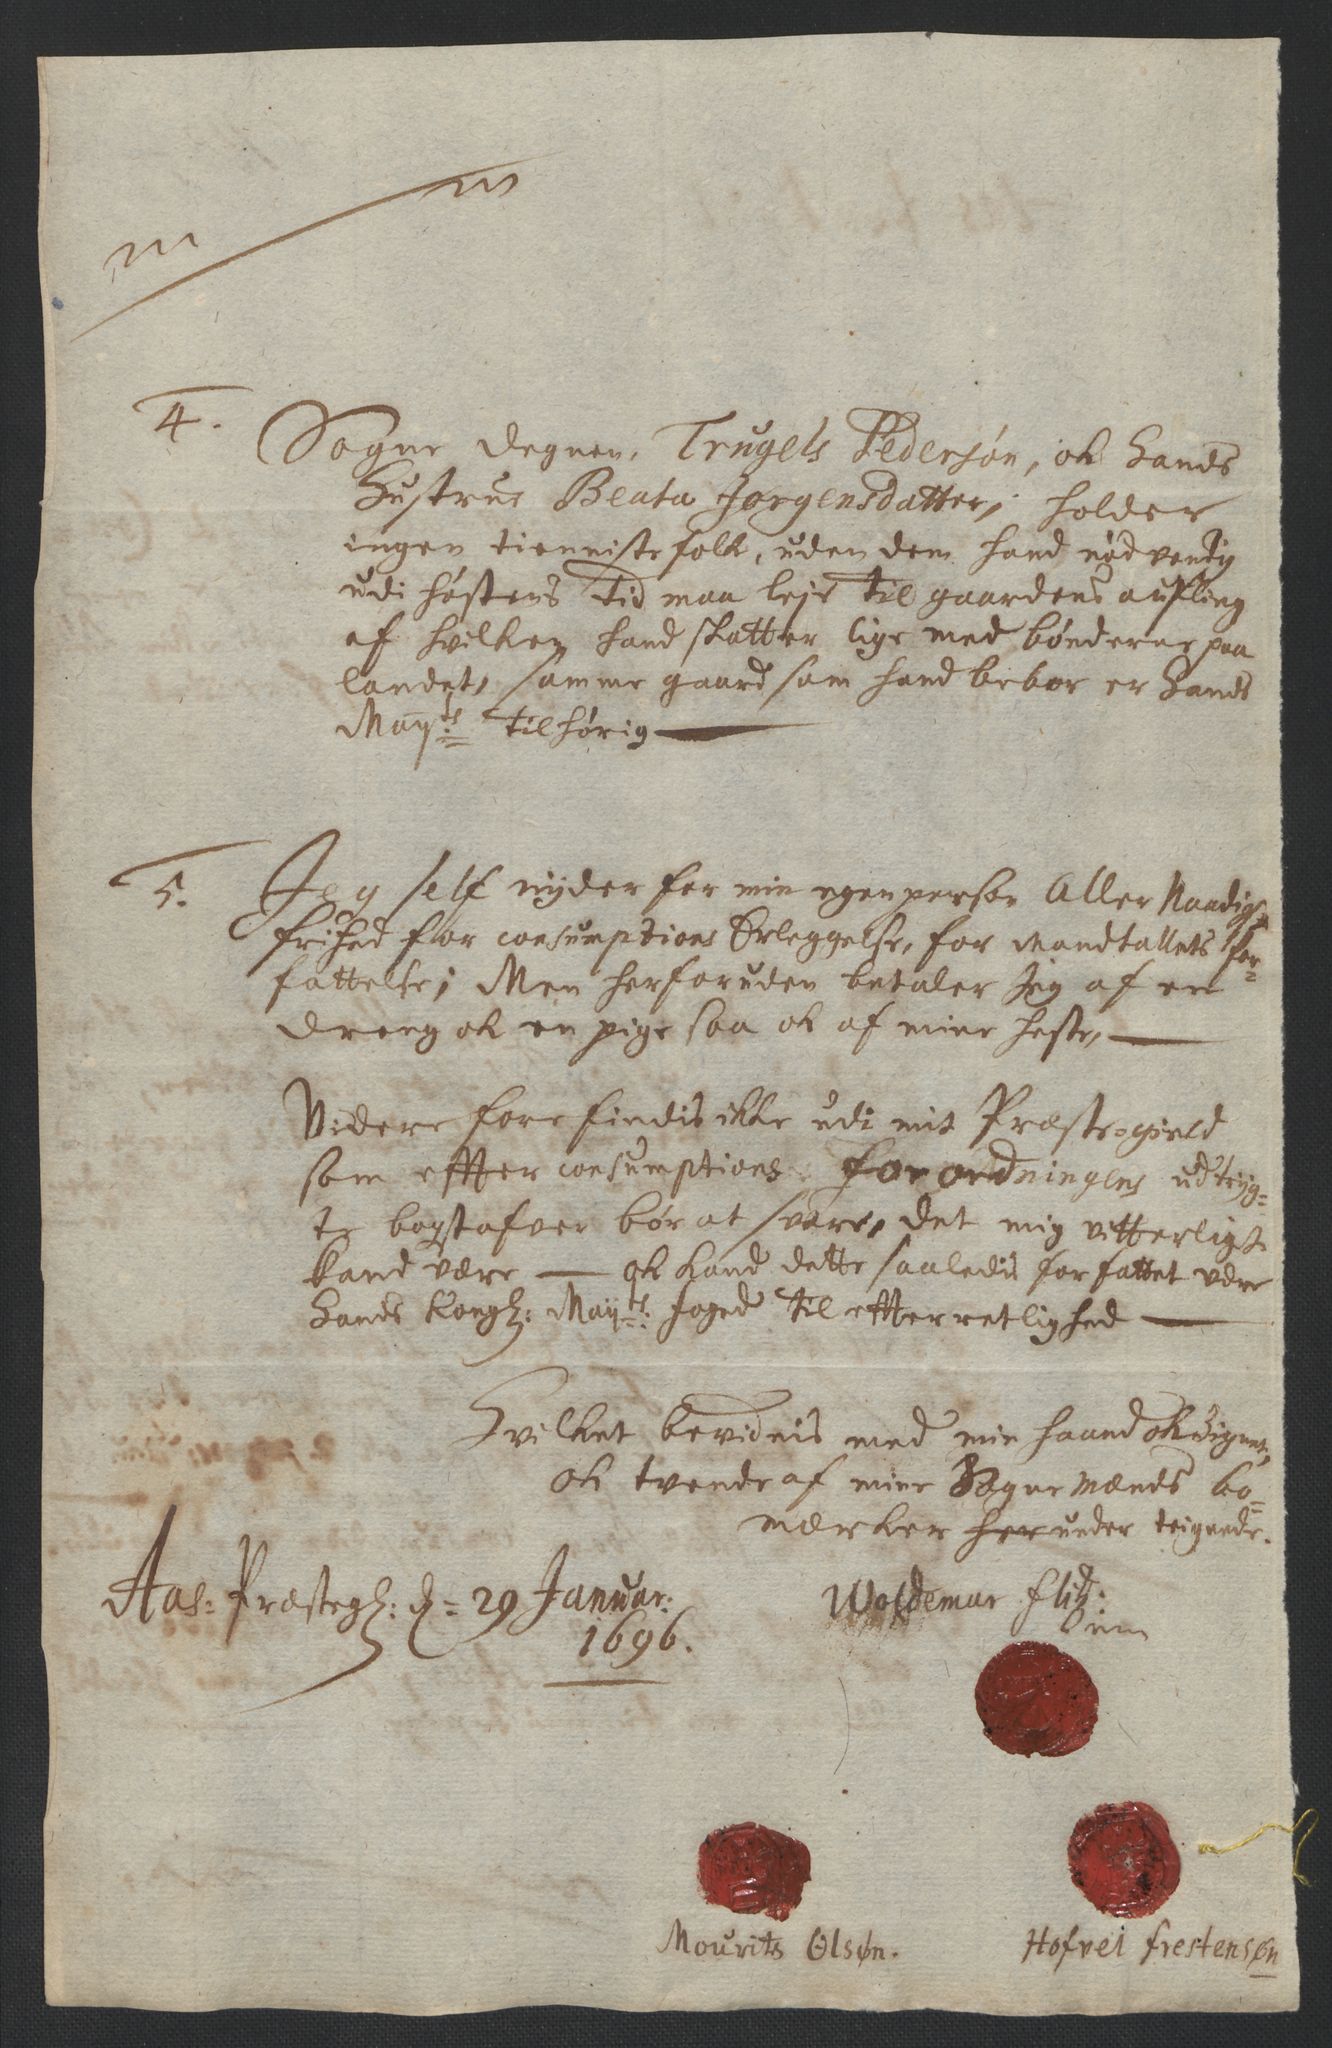 4.
Sogne degnen, Trugels Pedersøn, ok hands
Hustrue Beata Jørgensdatter, holder
ingen tienniste folk, uden dem hand nødvendig
udi høstens tid maa leje til gaardens aufling
af hvilken hand skatter lige med bønderne paa
landet, samme gaard som hand bebor er hands
Mayts: tilhørig
5.
Jeg self nyder for min egen person Aller Naadigst
frihed for consumptions Erleggelse, for Mandtallets for=
fattelse; Men herforuden betaler Jeg af en
dreng ok en pige saa ok af mine heste,
Videre forefindis ikke udi mit Præstegield
som effter consumptions forordningens udtryg=
te bogstafver bør at svare, det mig vitterligt
kand være ok kand dette saaledis forfattet være
Hands Kongl: Mayts: foged til efterretlighed
Hvilket bevidnis med min haand ok Signete,
ok tvende af mine Sogne Mænds bo=
mærker her under teignede.
Aas: Præstegl: d= 29 Januar:
1696.
Woldemar
Mourits Olsøn.
Hofvel frestensøn